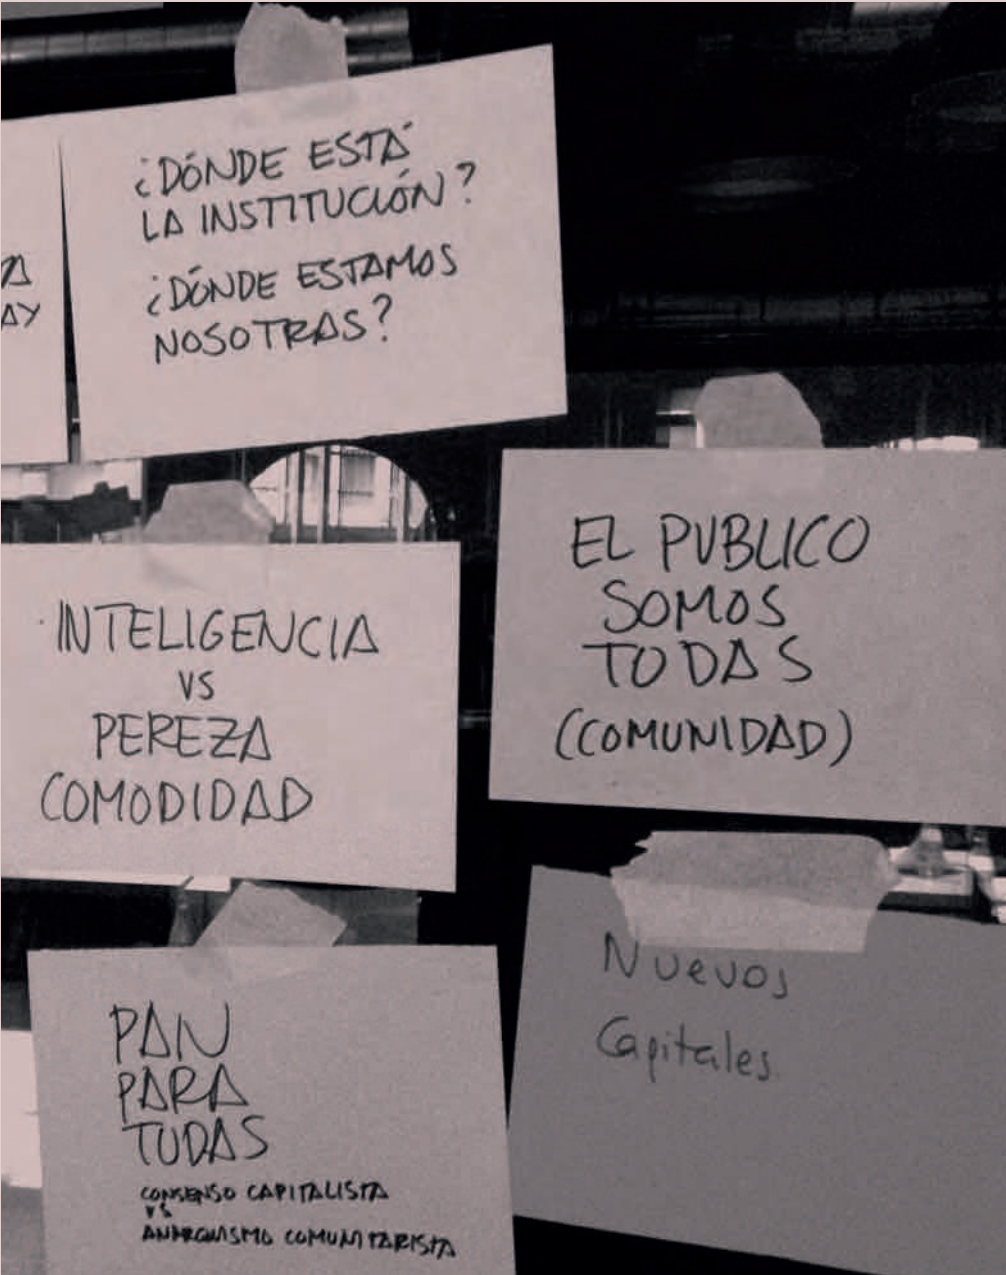 ¿DÓNDE ESTÁ
LA INSTITUCIÓN?
¿DÓNDE ESTAMOS
NOSOTRAS?
AY
INTELIGENCIA
VS
PEREZA
COMODIDAD
EL PUBLICO
SOMOS
TODAS
(COMUNIDAD)
PAN
PARA
TODAS
CONSENSO CAPITALISTA
VS
ANARQUISMO COMUNITARISTA
Nuevos
Capitales